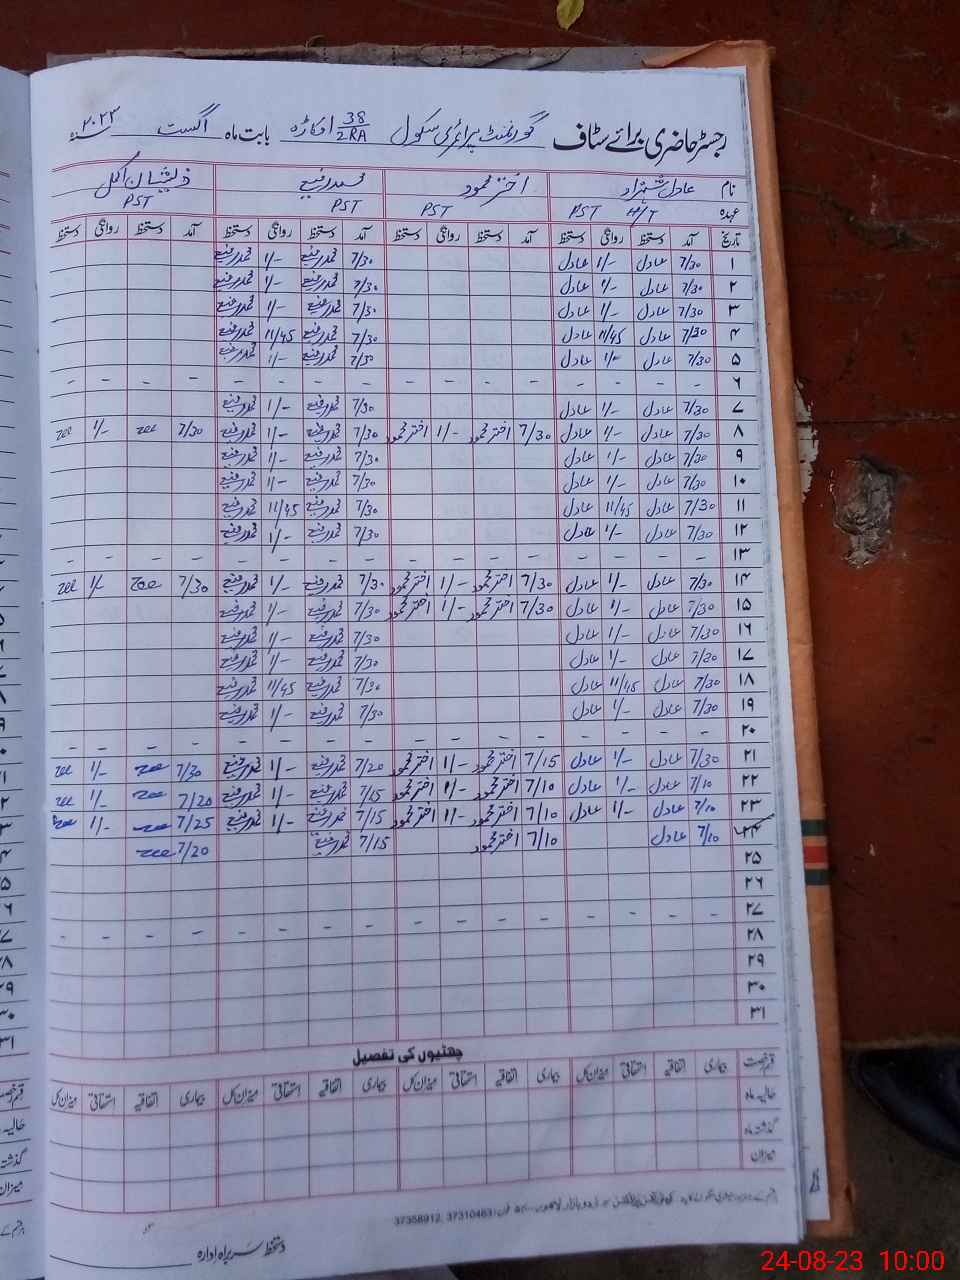 رجسٹر حاضری برائے سٹاف گورنمنٹ پرائمری سکول 38/2RA اوکاڑہ بابت ماہ اگست ۲۰۲۳
نام عادل شہزاد اختر محمود محمد رفیع ذیشان اکمل
عہدہ H/T PST PST PST PST
تاریخ آمد دستخط روانگی دستخط آمد دستخط روانگی دستخط آمد دستخط روانگی دستخط آمد دستخط روانگی دستخط
۱ 7/30 عادل 1/- عادل 7/30 محمد رفیع 1/- محمد رفیع
۲ 7/30 عادل 1/- عادل 7/30 محمد رفیع 1/- محمد رفیع
۳ 7/30 عادل 1/- عادل 7/30 محمد رفیع 1/- محمد رفیع
۴ 7/30 عادل 11/45 عادل 7/30 محمد رفیع 11/45 محمد رفیع
۵ 7/30 عادل 1/- عادل 7/30 محمد رفیع 1/- محمد رفیع
۶ - - - - - - - - - - - - - - - -
۷ 7/30 عادل 1/- عادل 7/30 محمد رفیع 1/- محمد رفیع
۸ 7/30 عادل 1/- عادل 7/30 اختر محمود 1/- اختر محمود 7/30 محمد رفیع 1/- محمد رفیع 7/30 1/-
۹ 7/30 عادل 1/- عادل 7/30 محمد رفیع 1/- محمد رفیع
۱۰ 7/30 عادل 1/- عادل 7/30 محمد رفیع 1/- محمد رفیع
۱۱ 7/30 عادل 11/45 عادل 7/30 محمد رفیع 11/45 محمد رفیع
۱۲ 7/30 عادل 1/- عادل 7/30 محمد رفیع 1/- محمد رفیع
۱۳ - - - - - - - - - - - - - - - -
۱۴ 7/30 عادل 1/- عادل 7/30 اختر محمود 1/- اختر محمود 7/30 محمد رفیع 1/- محمد رفیع 7/30 1/-
۱۵ 7/30 عادل 1/- عادل 7/30 اختر محمود 1/- اختر محمود 7/30 محمد رفیع 1/- محمد رفیع
۱۶ 7/30 عادل 1/- عادل 7/30 محمد رفیع 1/- محمد رفیع
۱۷ 7/30 عادل 1/- عادل 7/30 محمد رفیع 1/- محمد رفیع
۱۸ 7/30 عادل 11/45 عادل 7/30 محمد رفیع 11/45 محمد رفیع
۱۹ 7/30 عادل 1/- عادل 7/30 محمد رفیع 1/- محمد رفیع
۲۰ - - - - - - - - - - - - - - - -
۲۱ 7/30 عادل 1/- عادل 7/15 اختر محمود 1/- اختر محمود 7/20 محمد رفیع 1/- محمد رفیع 7/30 1/-
۲۲ 7/10 عادل 1/- عادل 7/10 اختر محمود 1/- اختر محمود 7/15 محمد رفیع 1/- محمد رفیع 7/20 1/-
۲۳ 7/10 عادل 1/- عادل 7/10 اختر محمود 1/- اختر محمود 7/15 محمد رفیع 1/- محمد رفیع 7/25 1/-
۲۴ 7/10 عادل 7/10 اختر محمود 7/15 محمد رفیع 7/20
۲۵
۲۶
۲۷ - - - - - - - - - - - - - - - -
۲۸
۲۹
۳۰
۳۱
چھٹیوں کی تفصیل
قسم رخصت بیماری اتفاقیہ استحقاقی میزان کل بیماری اتفاقیہ استحقاقی میزان کل بیماری اتفاقیہ استحقاقی میزان کل بیماری اتفاقیہ استحقاقی میزان کل
حالیہ ماہ
گذشتہ ماہ
میزان
37358912, 37310463
دستخط سربراہ ادارہ
24-08-23 10:00